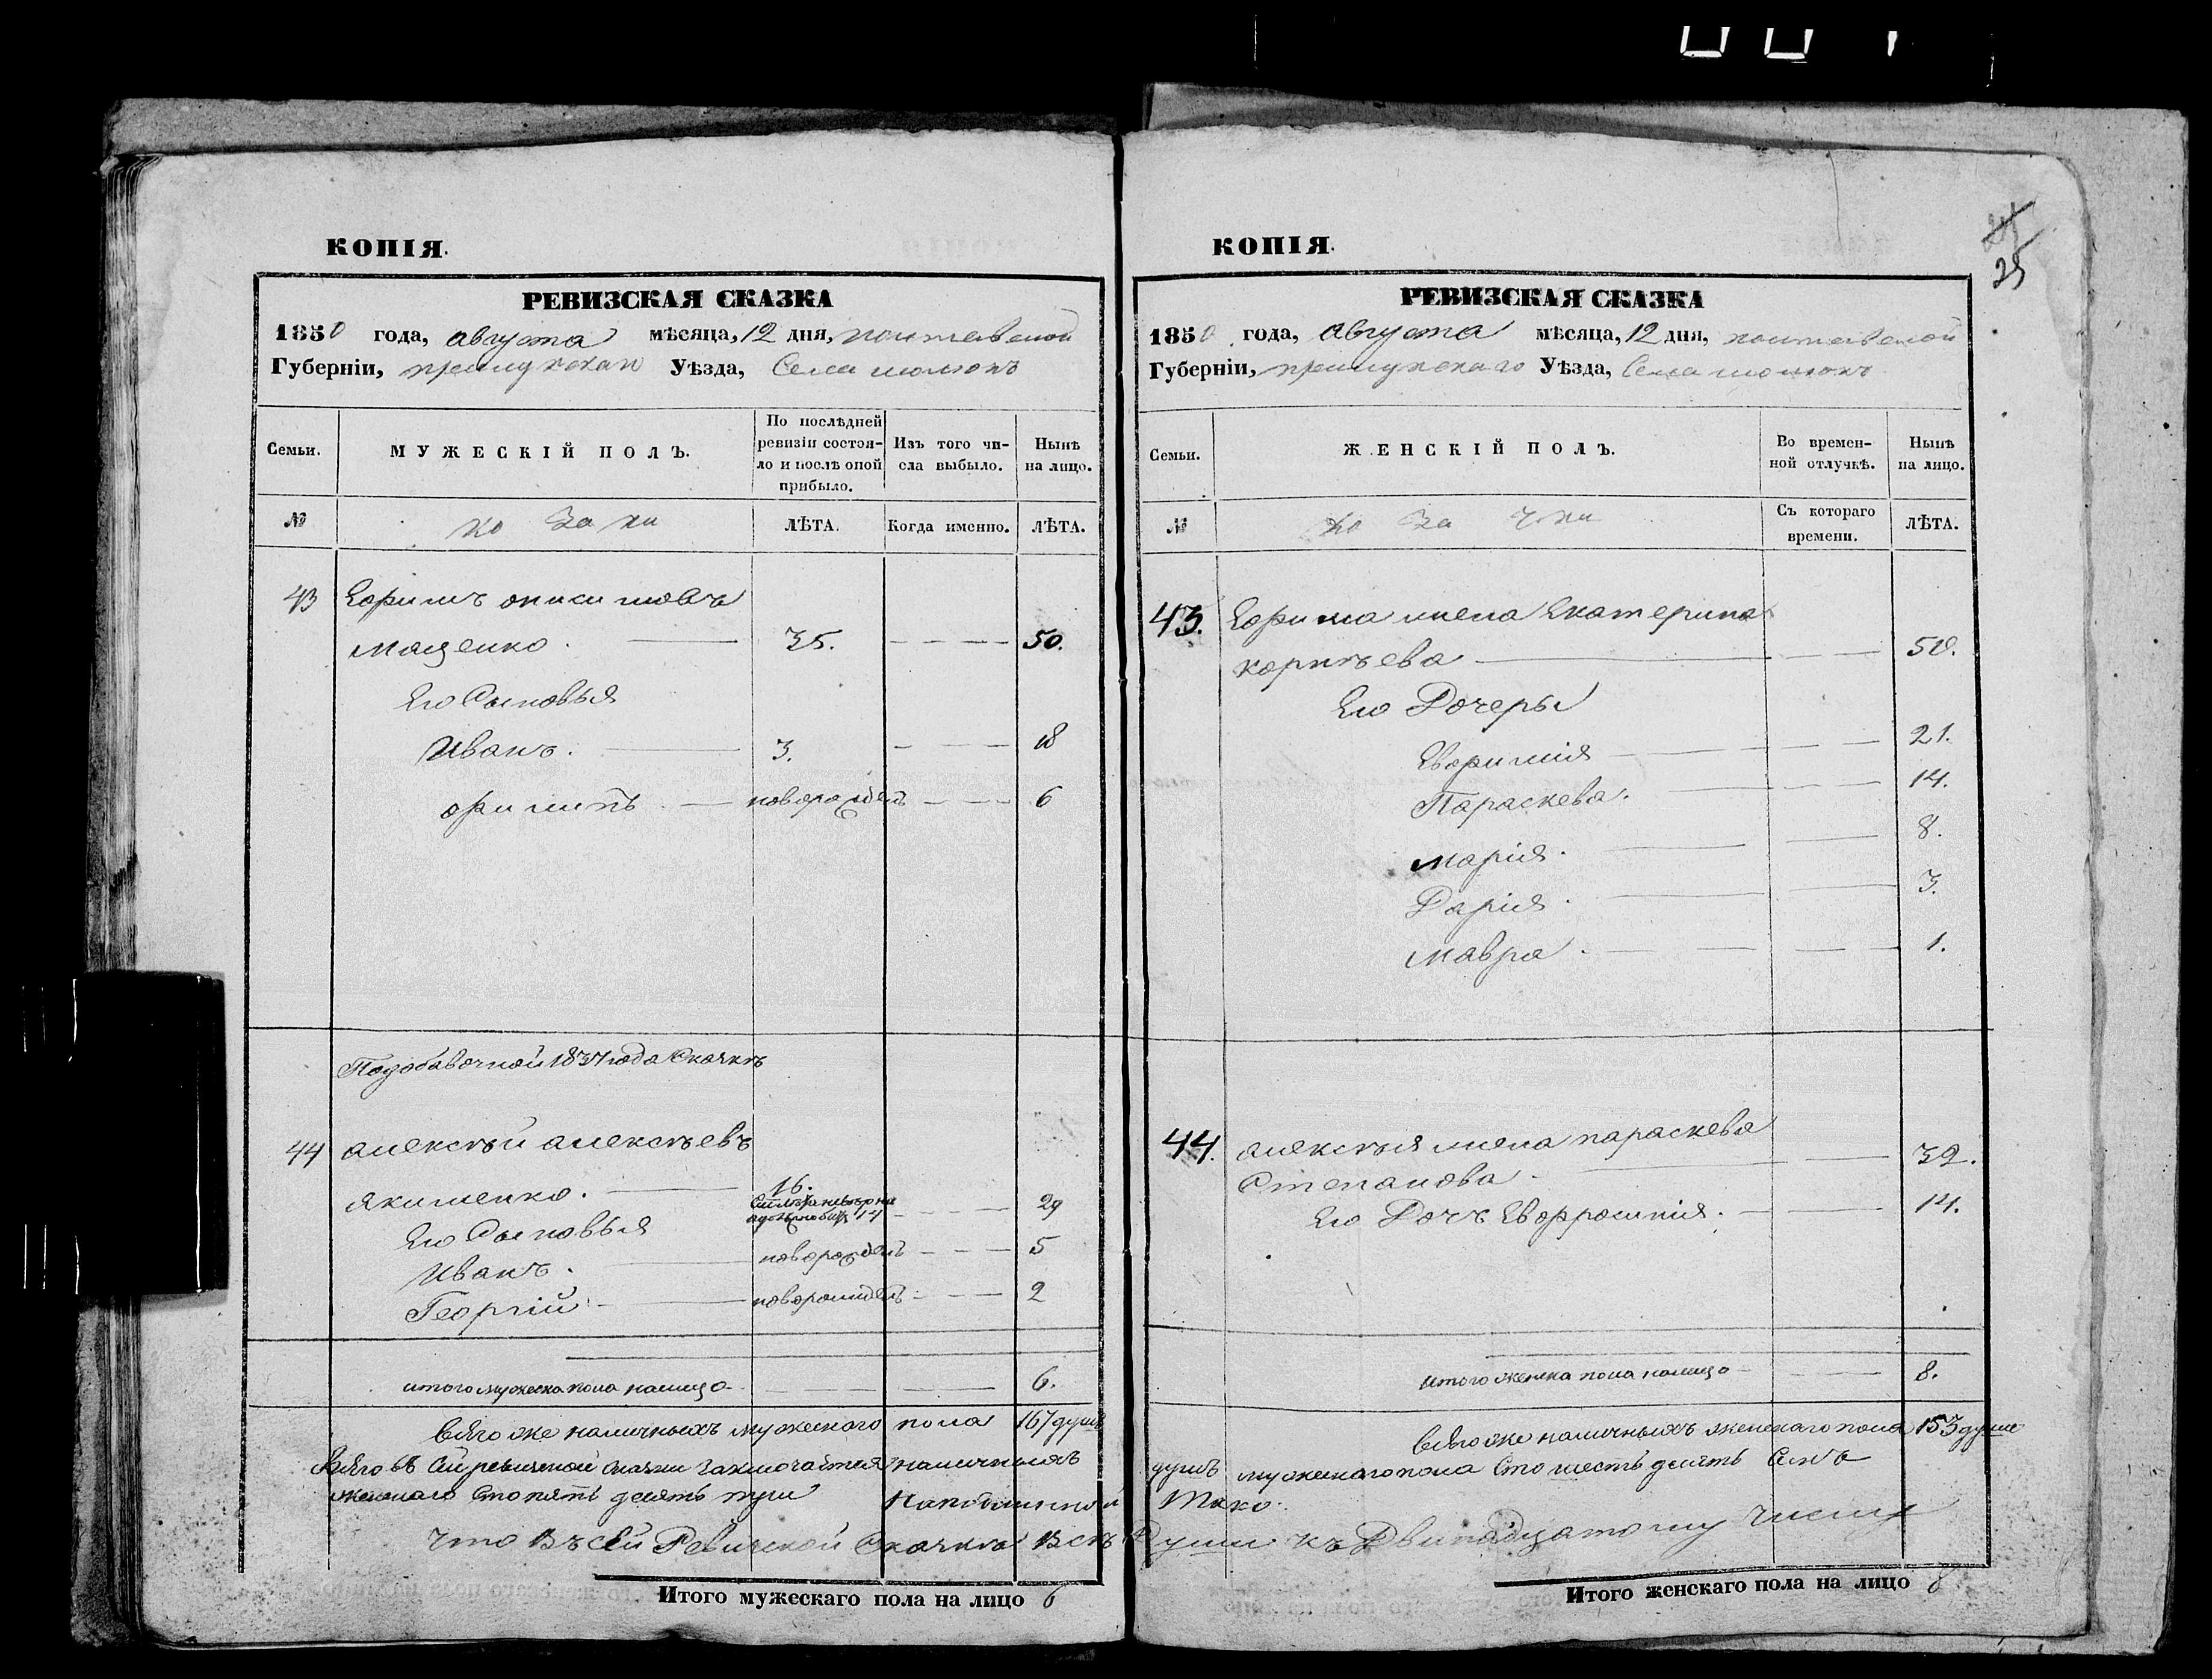 КОПІЯ.
РЕВИЗСКАЯ СКАЗКА
1850 года, августа мѣсяца, 12 дня, полтавской
Губерніи, прилукскаго Уѣзда, Села
Семьи.
МУЖЕСКІЙ ПОЛЪ.
По послѣдней ревизіи состояло и послѣ оной прибыло.
Изъ того числа выбыло.
Нынѣ на лицо.
№
козаки
ЛѢТА.
Когда именно.
ЛѢТА.
43 Ефимъ онисимовъ
мащенко. 35. 50.
Его Сыновья
Иванъ. 3. 18
филипъ новорожденъ 6
По добавочной 1837 года Сказкѣ
44 алексѣй алексѣевъ
якименко. 16.
29
Его Сыновья
Иванъ. новорожденъ 5
Георгій новорожденъ 2
итого мужеска пола налицо 6.
всего же наличныхъ мужескаго пола 167 душъ
Всего въ сей ревизкой сказки заключается наличныхъ
женскаго сто пятъ десятъ три
что Въ сей Ревизской Сказкѣ Всѣ
Итого мужескаго пола на лицо 6
25
КОПІЯ.
РЕВИЗСКАЯ СКАЗКА
1850 года, августа мѣсяца, 12 дня, полтавской
Губерніи, прилукскаго Уѣзда, Села
Семьи.
ЖЕНСКІЙ ПОЛЪ.
Во временной отлучкѣ.
Нынѣ на лицо.
№
козачки
Съ котораго времени.
ЛѢТА.
43. Ефима жена Екатерина
корнѣева 50.
Его Дочеры
Евфимія 21.
Параскева. 14.
марія. 8.
Дарія. 3.
мавра. 1.
44. алексѣя жена параскева
Степанова. 32.
Его Дочъ Евфросинія. 14.
итого женска пола налицо 8.
всего же наличныхъ женскаго пола 153 души
душъ мужескаго пола Сто шестъ десятъ Семъ
Тако:
Души къ Двинадцатому числа
Итого женскаго пола на лицо 8